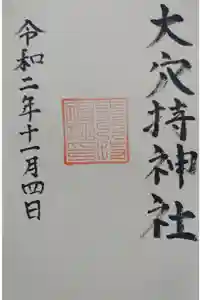 大穴持神社
令和二年十一月四日